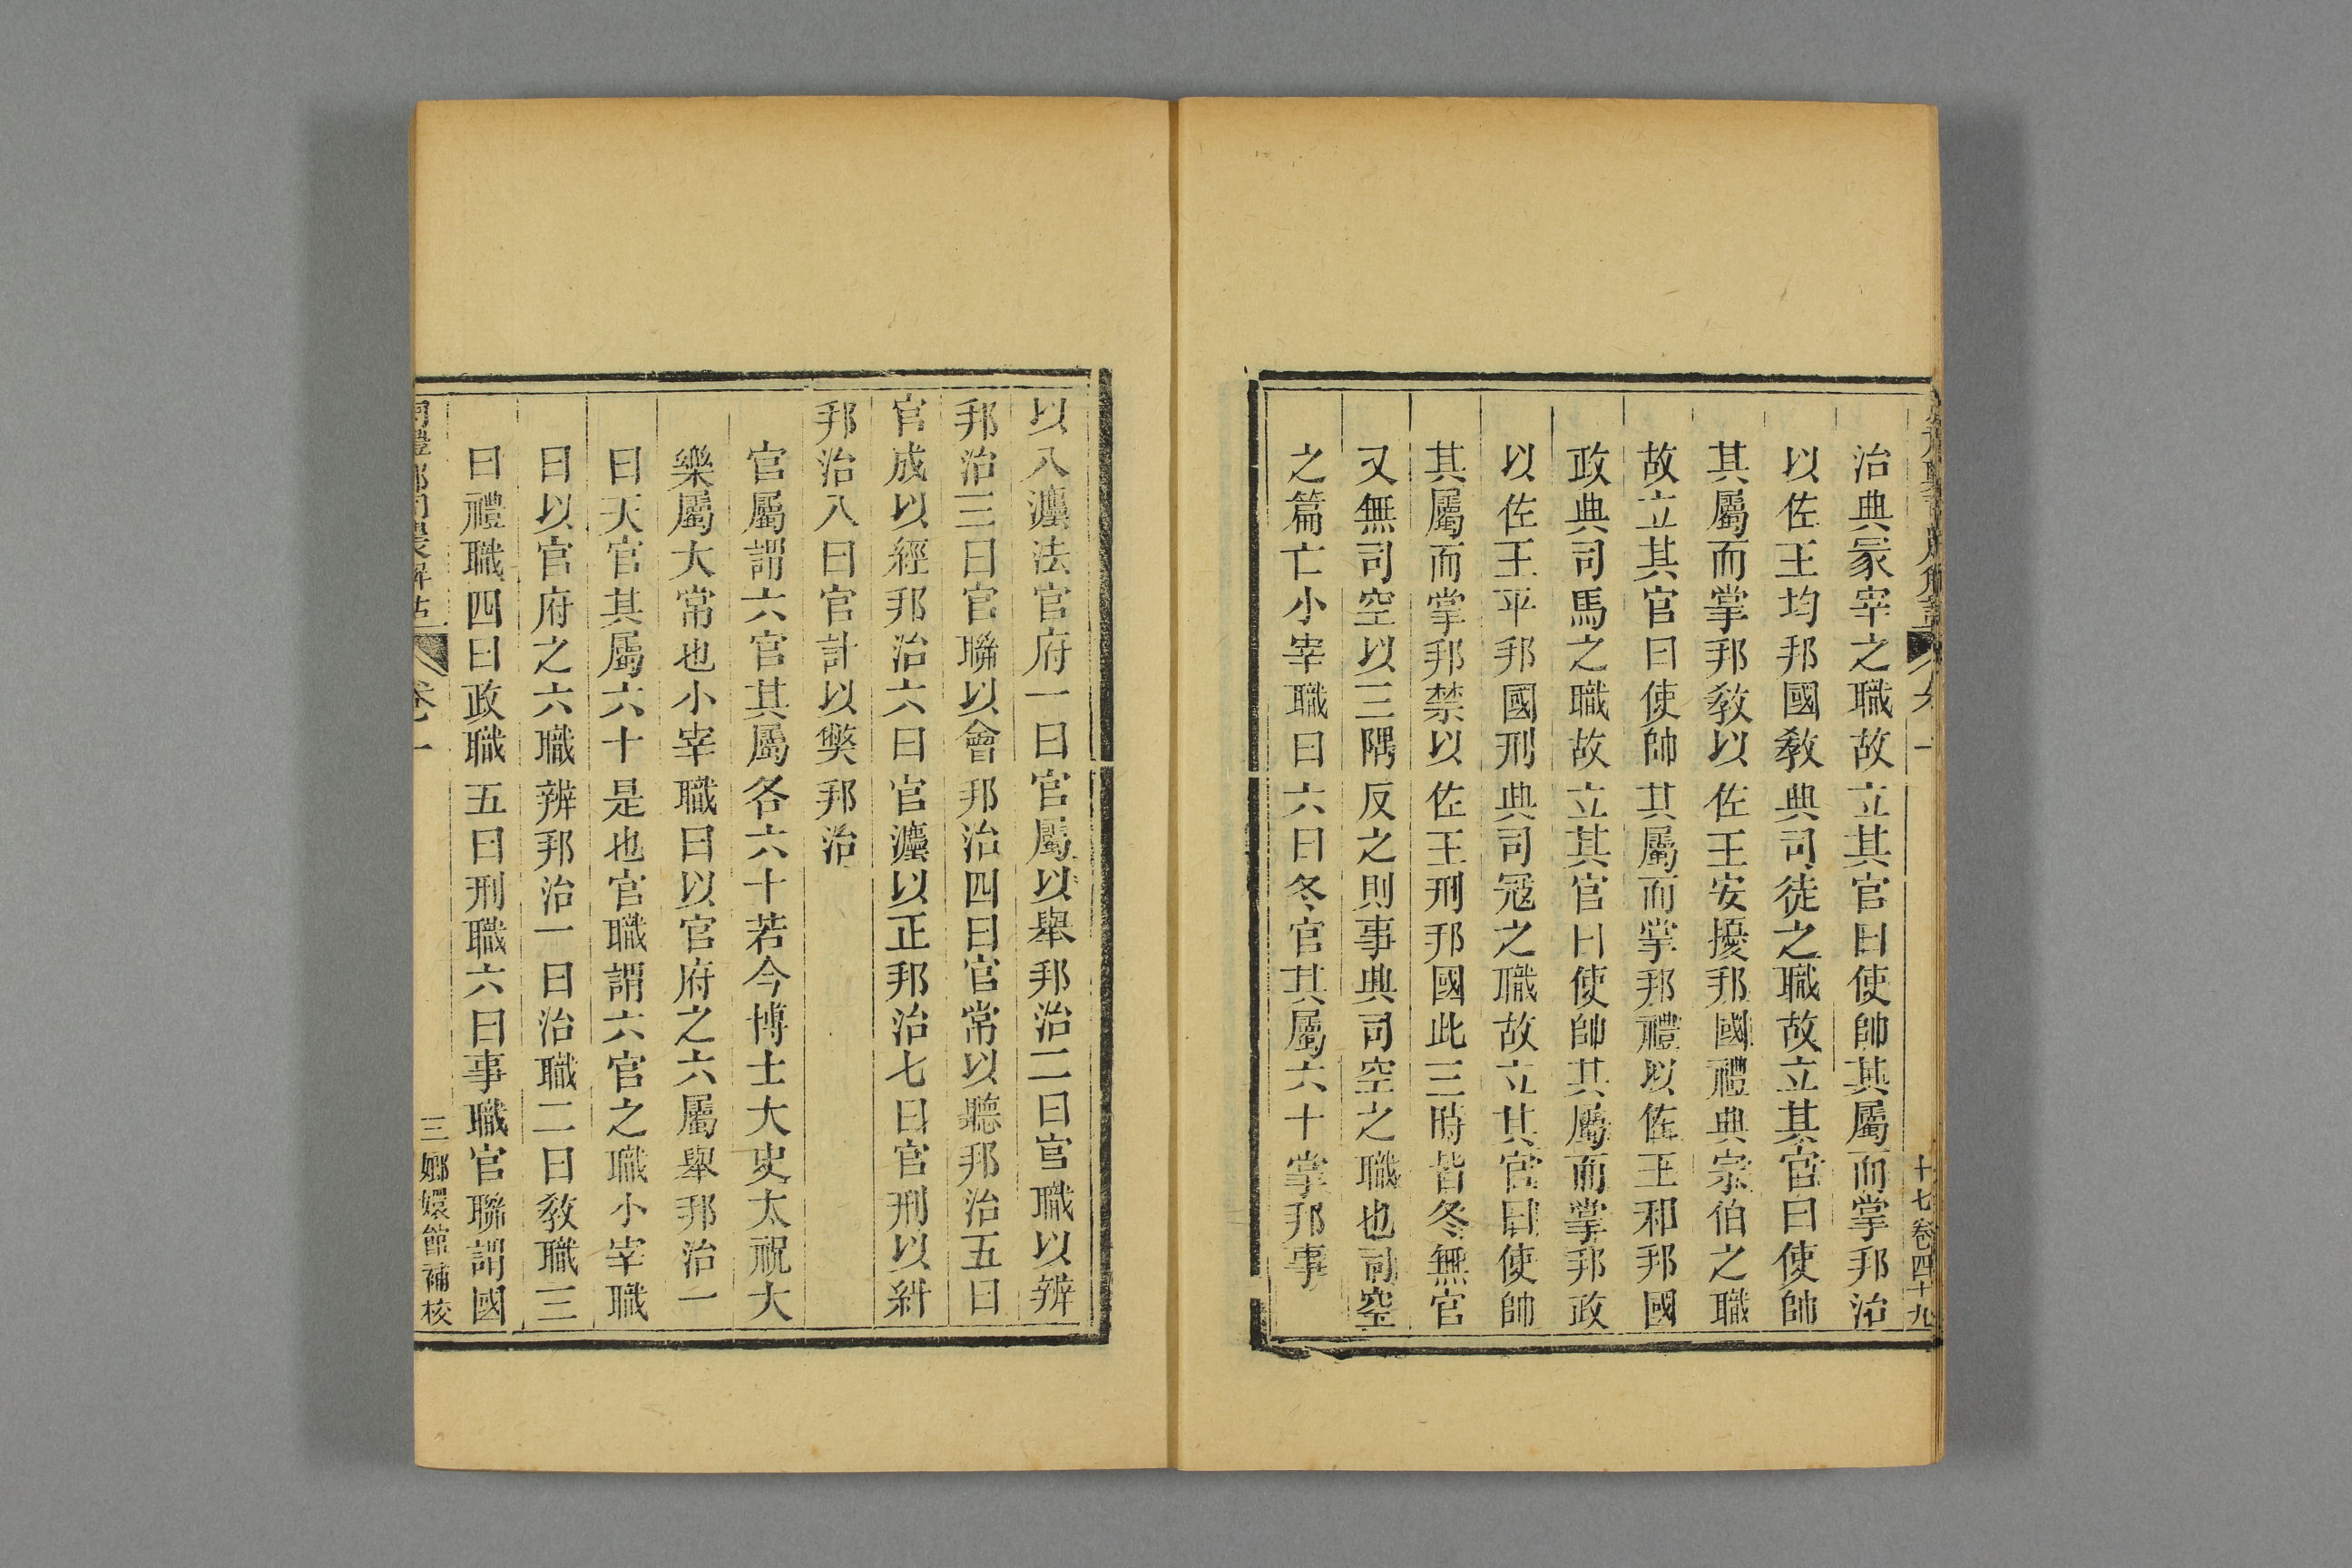 十七卷四十九
治典冡宰之職故立其官曰使帥其屬而掌邦治
以佐王均邦國敎典司徒之職故立其官曰使帥
其屬而掌邦敎以佐王安擾邦國禮典宗伯之職
故立其官曰使帥其屬而掌邦禮以佐王和邦國
政典司馬之職故立其官曰使帥其屬而掌邦政
以佐王平邦國刑典司冦之職故立其官曰使帥
其屬而掌邦禁以佐王刑邦國此三時皆冬無官
又無司空以三隅反之則事典司空之職也司空
之篇亡小宰職曰六曰冬官其屬六十掌邦事
以八灋法官府一曰官屬以舉邦治二曰官職以辨
邦治三曰官聯以會邦治四曰官常以聽邦治五曰
官成以經邦治六曰官灋以正邦治七曰官刑以糾
邦治八曰官計以獘邦治
官屬謂六官其屬各六十若今博士大史太祝大
樂屬大常也小宰職曰以官府之六屬舉邦治一
曰天官其屬六十是也官職謂六官之職小宰職
曰以官府之六職辨邦治一曰治職二曰敎職三
曰禮職四曰政職五曰刑職六曰事職官聯謂國
卷一 三 嫏嬛館補校